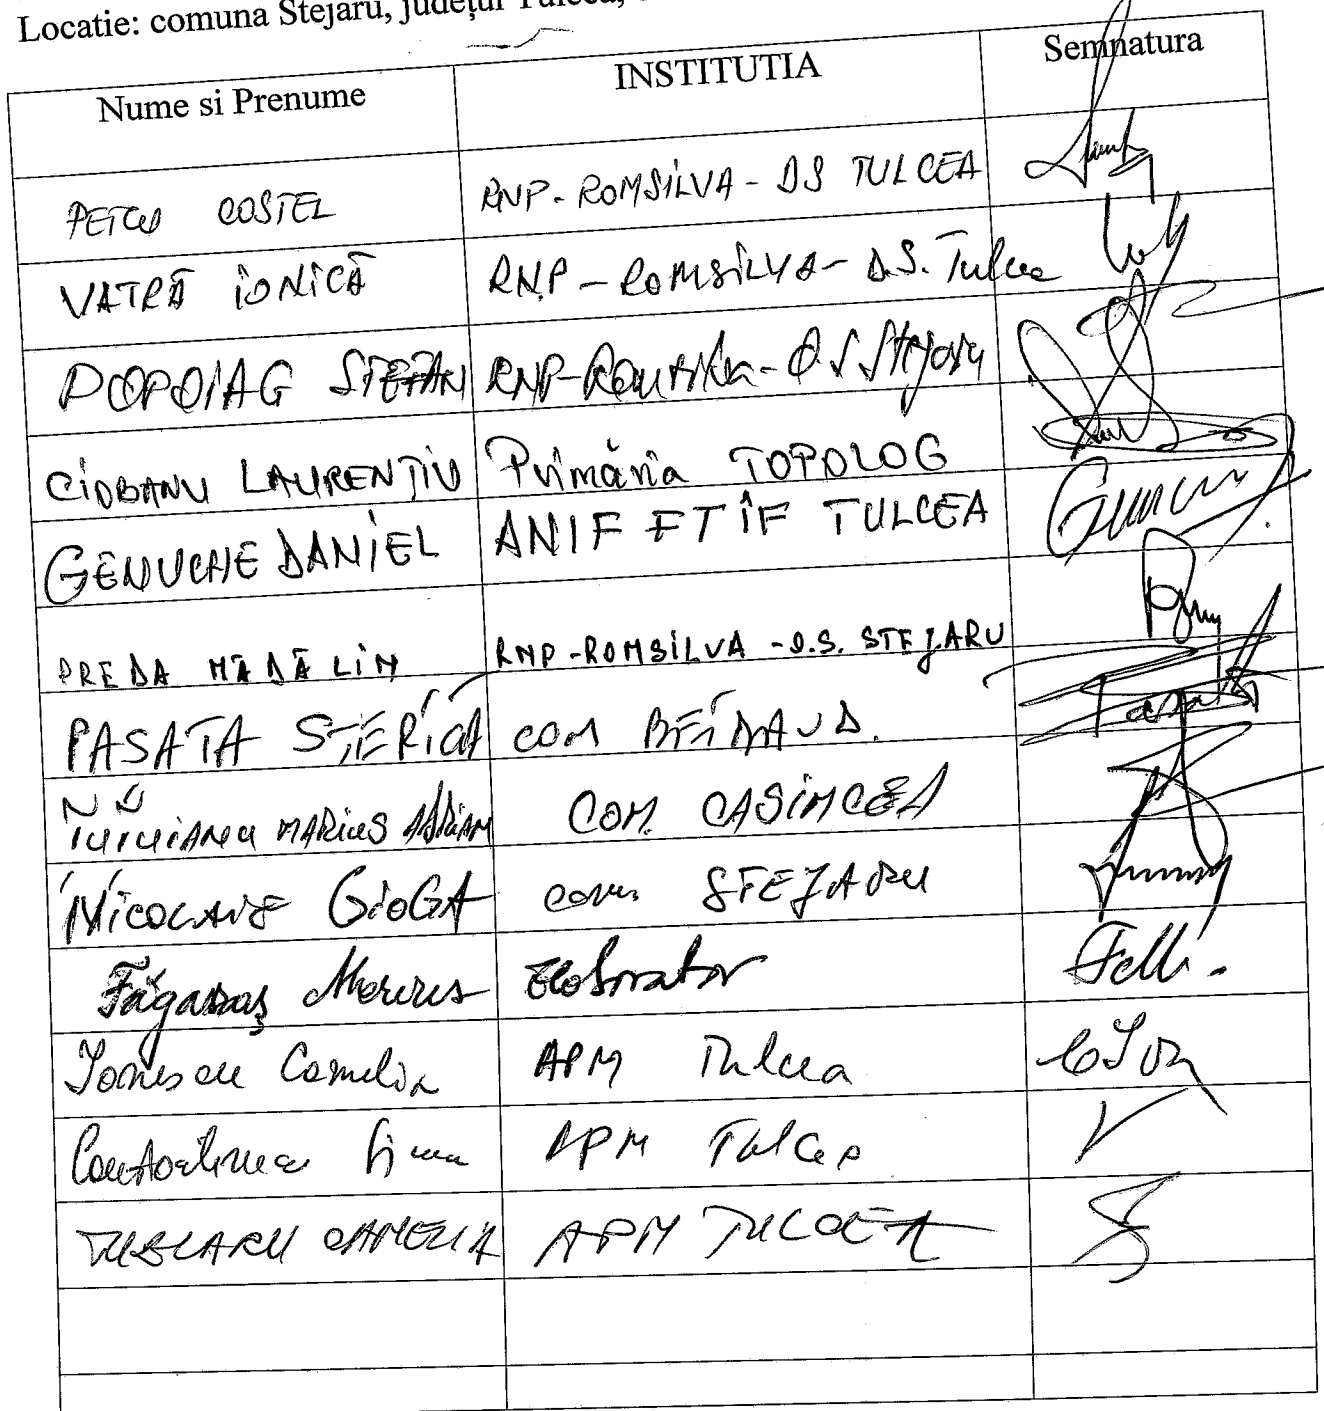 Locatie: comuna Stejaru, județul Tulcea,
Nume si Prenume INSTITUTIA Semnatura
PETCU COSTEL RNP-ROMSILVA-DS TULCEA
VATRĂ IONICĂ RNP-ROMSILVA-D.S. Tulcea
POPOIAG STEFAN RNP-Romsilva-O S Stejaru
CIOBANU LAURENȚIU Primăria TOPOLOG
GENUCHE DANIEL ANIF FT ÎF TULCEA
PREDA MĂDĂLIN RNP-ROMSILVA-O.S. STEJARU
PASATA STERICA COM BEIDAUD.
MARIUS ADRIAN COM. CASIMCEA
NICOLAE GIOGA com. STEJARU
Făgaraș Marius Elaborator
Ionescu Camelia APM Tulcea
APM Tulcea
CAMELIA APM TULCEA